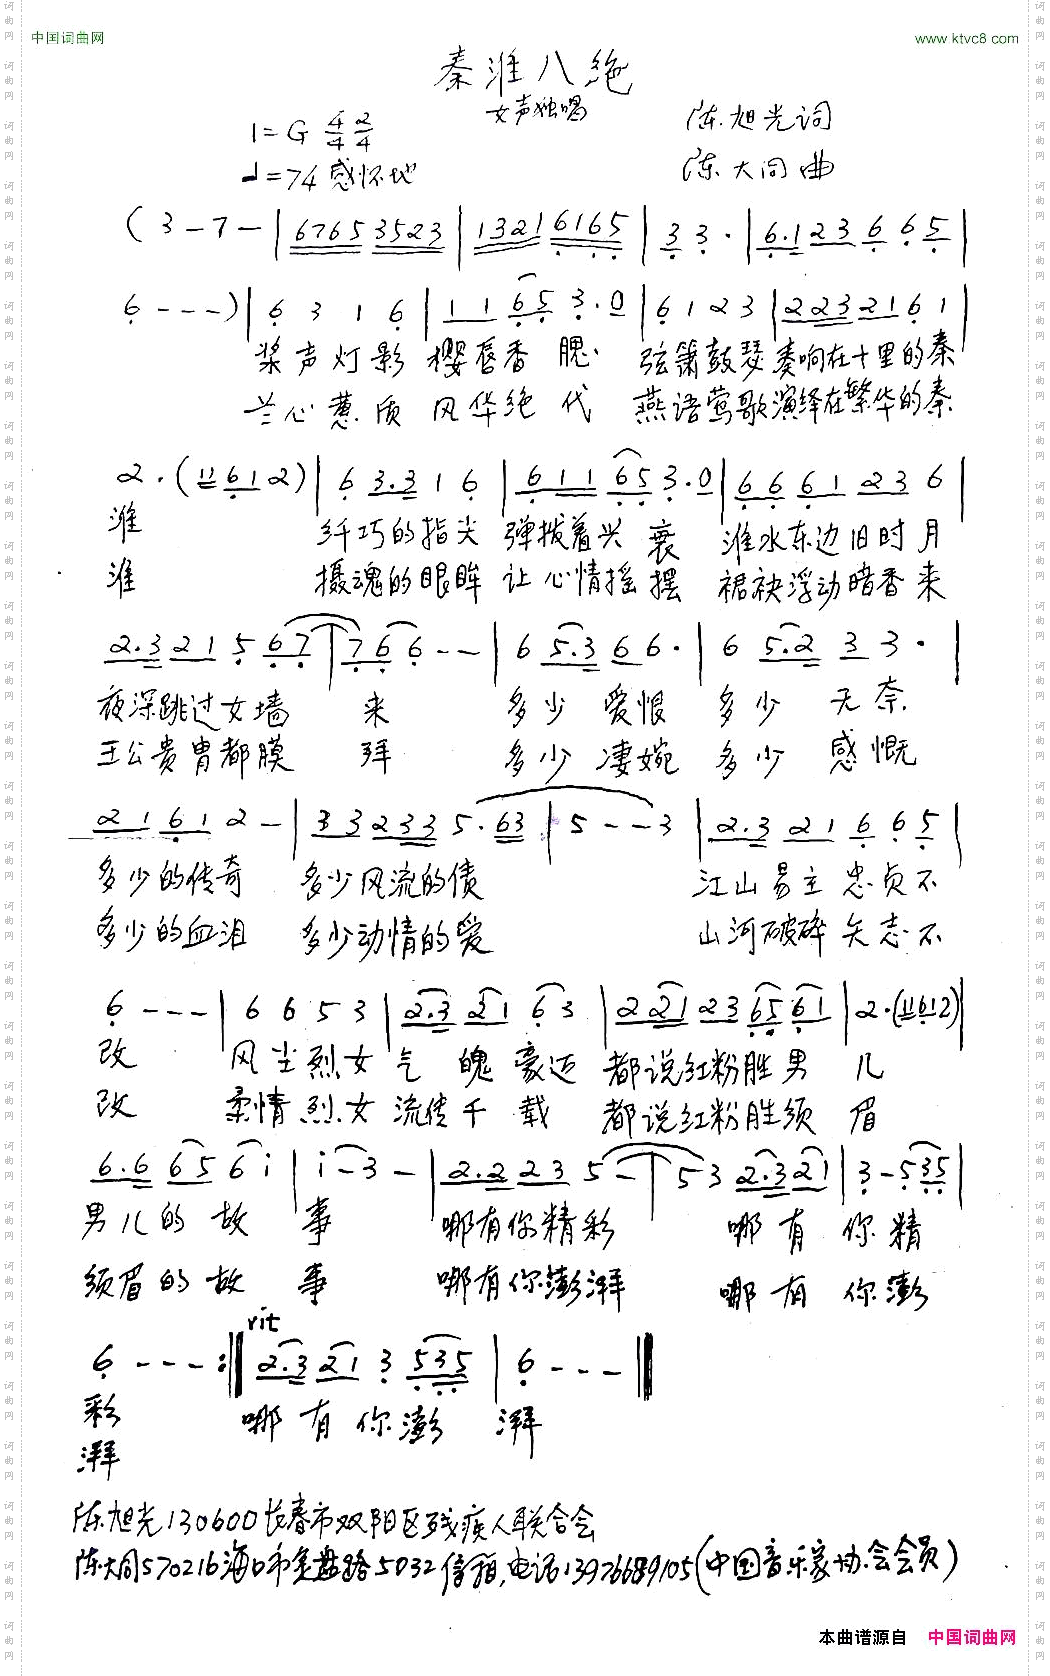 中国词曲网
www.ktvc8.com
秦淮八绝
女声独唱
1=G 4/4 2/4
♩=74 感怀地
陈旭光词
陈大同曲
( 3 - 7 - | 6765 3523 | 1321 6165 | 3 3 · | 6.1 2 3 6 6 5 |
6 - - - ) | 6 3 1 6 | 1 1 6 5 3 . 0 | 6 1 2 3 | 2 2 3 2 1 6 1 |
桨声灯影 樱唇香腮 弦箫鼓瑟奏响在十里的秦
兰心蕙质 风华绝代 燕语莺歌演绎在繁华的秦
2 . ( 11 6 1 2 ) | 6 3.3 1 6 | 6 1 1 6 5 3 . 0 | 6 6 6 1 2 3 6 |
淮 纤巧的指尖 弹拨着兴衰 淮水东边旧时月
淮 摄魂的眼眸 让心情摇摆 裙袂浮动暗香来
2.3 2 1 5 6 7 | 7 6 6 - - | 6 5.3 6 6 · | 6 5.2 3 3 · |
夜深跳过女墙 来 多少爱恨 多少无奈
王公贵胄都膜 拜 多少凄婉 多少感慨
2 1 6 1 2 - | 3 3 2 3 3 5 . 6 3 | 5 - - 3 | 2.3 2 1 6 6 5 |
多少的传奇 多少风流的债 江山易主忠贞不
多少的血泪 多少动情的爱 山河破碎矢志不
6 - - - | 6 6 5 3 | 2.3 2 1 6 3 | 2 2 1 2 3 6 5 6 1 | 2 . ( 11 6 1 2 ) |
改 风尘烈女气魄豪迈 都说红粉胜男 儿
改 柔情烈女流传千载 都说红粉胜须 眉
6.6 6 5 6 i | i - 3 - | 2.2 2 3 5 - | 5 3 2.3 2 1 | 3 - 5 3 5 |
男儿的故 事 哪有你精彩 哪有你精
须眉的故 事 哪有你澎湃 哪有你澎
rit
6 - - - :‖ 2.3 2 1 3 5 3 5 | 6 - - - ‖
彩 哪有你澎 湃
湃
陈旭光130600长春市双阳区残疾人联合会
陈大同570216海口市金盘路5032信箱,电话13976689105(中国音乐家协会会员)
本曲谱源自 中国词曲网